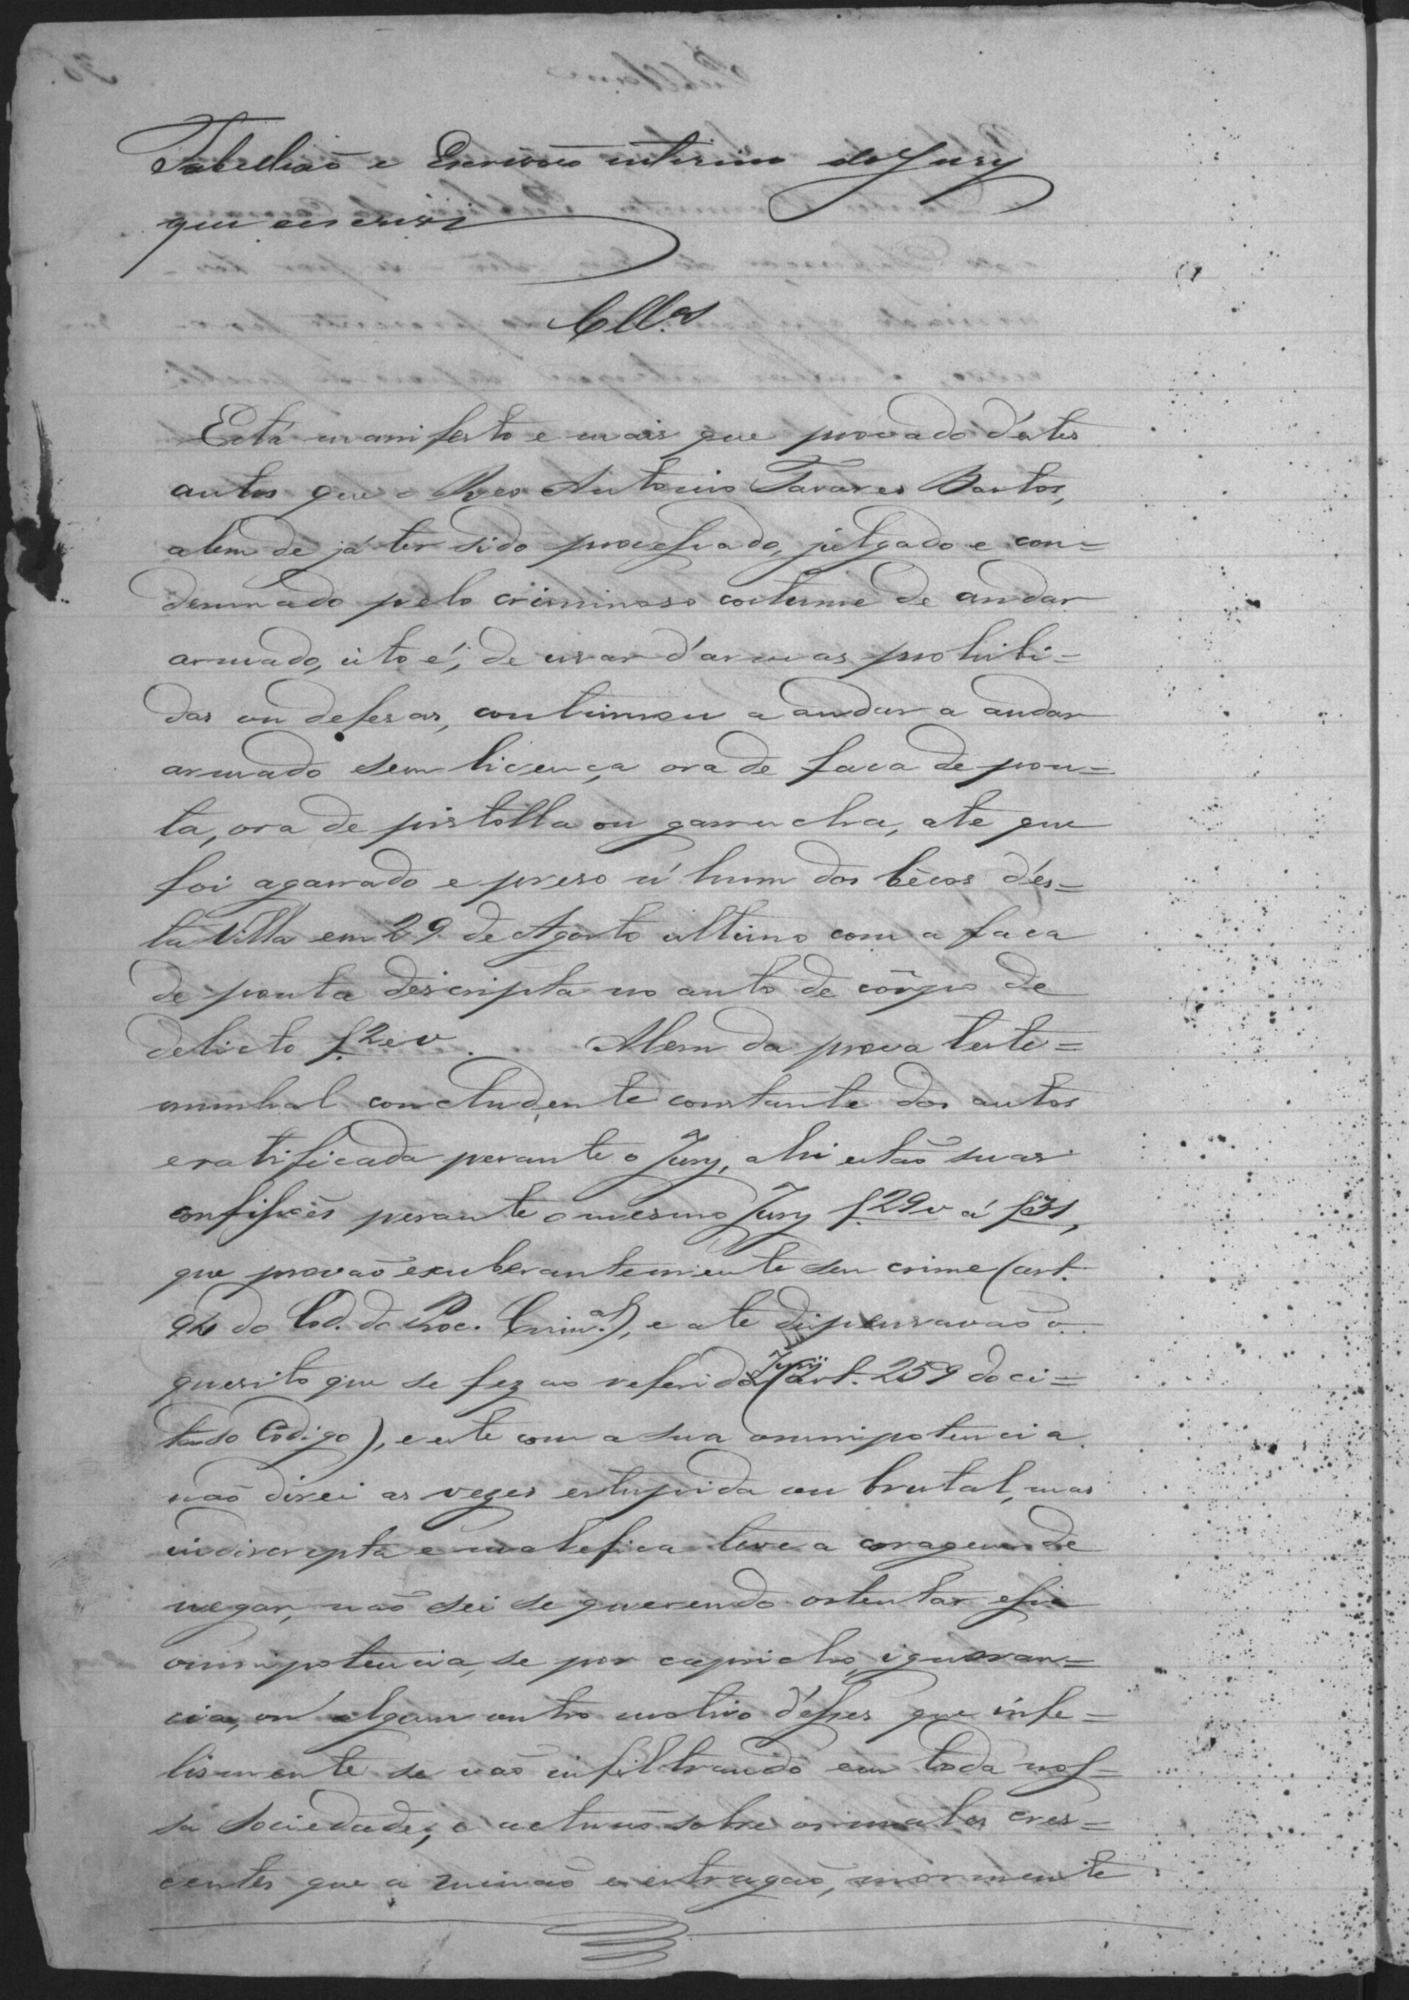 Tabellião e Escrivão interino do Jury
que escrevi
Cll.os
Está manifesto e mais que provado d'estes
autos que o Reo Antonio Tavares Bastos,
alem de já ter sido processado, julgado e con=
demnado pelo criminoso costume de andar
armado, isto é, de usar d'armas prohibi=
das ou defesas, continuou a andar a andar
armado sem licença, ora de faca de pon=
ta, ora de pistolla ou garrucha, até que
foi agarrado e preso n'hum dos bêcos d'es=
ta Villa em 29 de Agosto ultimo com a faca
de ponta descripta no auto de côrpo de
delicto f. 2 e v. Alem da prova teste=
munhal concludente constante dos autos
e ratificada perante o Jury, ahi estão suas
confissões perante o mesmo Jury f. 29 v á f. 31,
que provão exuberantemente seu crime (art.
94 do Cod. do Proc. Crim.al), e até dispensavão o
quesito que se fez ao referido Jury (art. 259 do ci=
tado Codigo), e este com a sua omnipotencia
não direi as vezes estupida ou brutal, mas
indiscripta e malefica teve a coragem de
negar, não sei se querendo ostentar essa
omnipotencia, se por capricho, ignoran=
cia, ou algum outro motivo d'esses que infe=
lismente se vão infiltrando em toda nos=
sa sociedade, e actuão sobre os males cres=
centes que a minão e estragão, mórmente